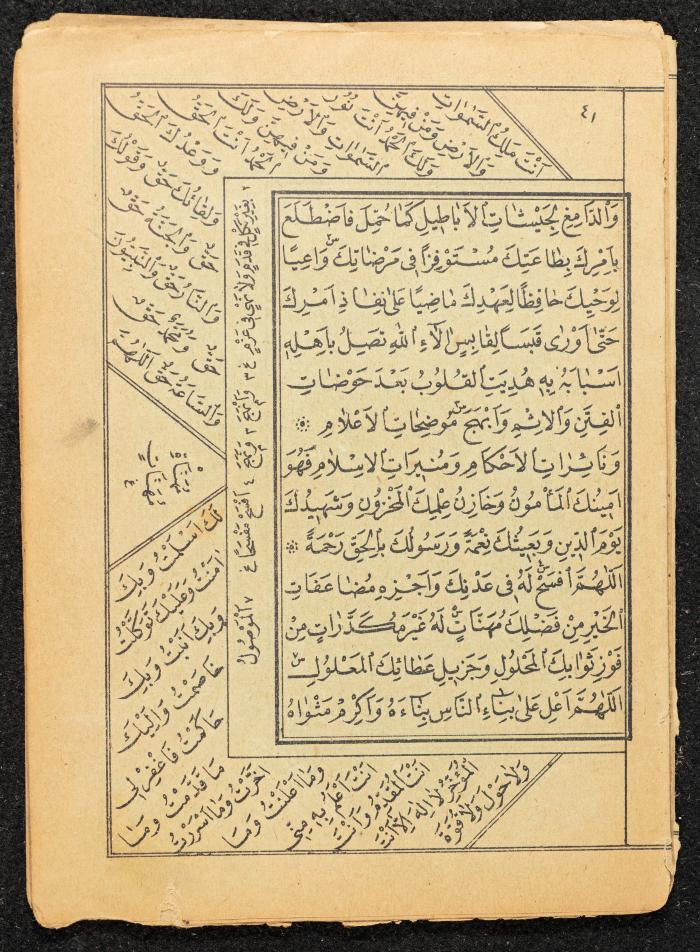 ٤١
وَالدَّامِغِ لِجَيْشَاتِ الْاَبَاطِيلِ كَمَا حُمِّلَ فَاضْطَلَعَ
بِاَمْرِكَ بِطَاعَتِكَ مُسْتَوْفِزًا فِى مَرْضَاتِكَ وَاعِيًا
لِوَحْيِكَ حَافِظًا لِعَهْدِكَ مَاضِيًا عَلٰى نَفَاذِ اَمْرِكَ
حَتّٰى اَوْرٰى قَبَسًا لِقَابِسٍ اٰلَاءُ اللّٰهِ تَصِلُ بِاَهْلِهِ
اَسْبَابَهُ بِهِ هُدِيَتِ الْقُلُوبُ بَعْدَ خَوْضَاتِ
الْفِتَنِ وَالْاِثْمِ وَاَبْهَجَ مُوضِحَاتِ الْاَعْلَامِ
وَنَائِرَاتِ الْاَحْكَامِ وَمُنِيرَاتِ الْاِسْلَامِ فَهُوَ
اَمِينُكَ الْمَأْمُونُ وَخَازِنُ عِلْمِكَ الْمَخْزُونِ وَشَهِيدُكَ
يَوْمَ الدِّينِ وَبَعِيثُكَ نِعْمَةً وَرَسُولُكَ بِالْحَقِّ رَحْمَةً
اَللّٰهُمَّ افْسَحْ لَهُ فِى عَدْنِكَ وَاجْزِهِ مُضَاعَفَاتِ
الْخَيْرِ مِنْ فَضْلِكَ مُهَنَّاتٍ لَهُ غَيْرَ مُكَدَّرَاتٍ مِنْ
فَوْزِ ثَوَابِكَ الْمَحْلُولِ وَجَزِيلِ عَطَائِكَ الْمَعْلُولِ
اَللّٰهُمَّ اَعْلِ عَلٰى بِنَاءِ النَّاسِ بِنَاءَهُ وَاَكْرِمْ مَثْوَاهُ
اَنْتَ مَلِكُ السَّمٰوَاتِ
وَالْاَرْضِ وَمَنْ فِيهِنَّ
وَلَكَ الْحَمْدُ اَنْتَ نُورُ
السَّمٰوَاتِ وَالْاَرْضِ
وَمَنْ فِيهِنَّ وَلَكَ
الْحَمْدُ اَنْتَ الْحَقُّ
وَوَعْدُكَ الْحَقُّ
وَلِقَائُكَ حَقٌّ وَقَوْلُكَ
حَقٌّ وَالْجَنَّةُ حَقٌّ
وَالنَّارُ حَقٌّ وَالنَّبِيُّونَ
حَقٌّ وَمُحَمَّدٌ حَقٌّ
وَالسَّاعَةُ حَقٌّ اَللّٰهُمَّ
لَكَ اَسْلَمْتُ وَبِكَ
اٰمَنْتُ وَعَلَيْكَ تَوَكَّلْتُ
وَبِكَ اٰمَنْتُ وَبِكَ
خَاصَمْتُ وَاِلَيْكَ
حَاكَمْتُ فَاغْفِرْ لِى
مَا قَدَّمْتُ وَمَا
اَخَّرْتُ وَمَا اَسْرَرْتُ
وَمَا اَعْلَنْتُ وَمَا
اَنْتَ اَعْلَمُ بِهِ مِنِّى
اَنْتَ الْمُقَدِّمُ وَاَنْتَ
الْمُؤَخِّرُ لَا اِلٰهَ اِلَّا اَنْتَ
وَلَا حَوْلَ وَلَا قُوَّةَ